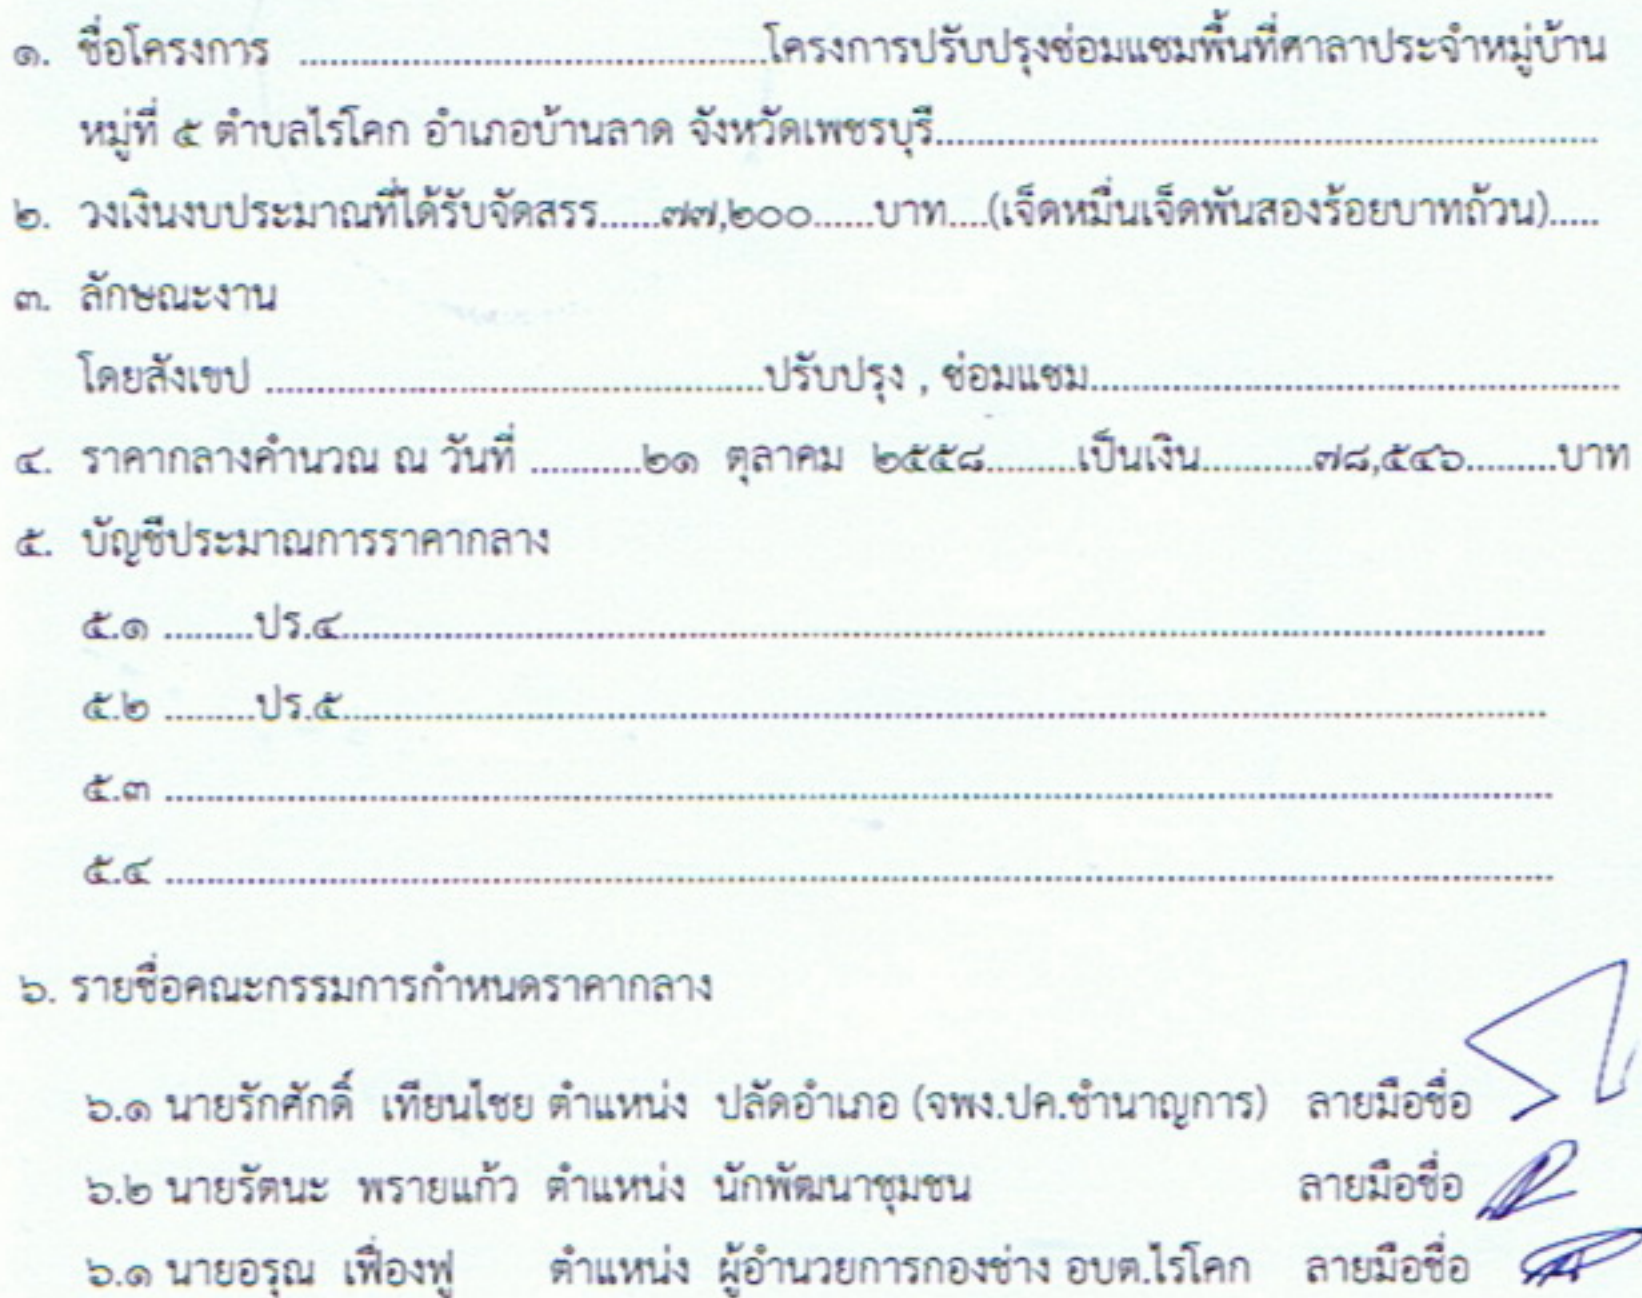 ๑. ชื่อโครงการ ..........................................โครงการปรับปรุงซ่อมแซมพื้นที่ศาลาประจำหมู่บ้าน
หมู่ที่ ๕ ตำบลไร่โคก อำเภอบ้านลาด จังหวัดเพชรบุรี............................................................
๒. วงเงินงบประมาณที่ได้รับจัดสรร......๗๗,๒๐๐......บาท....(เจ็ดหมื่นเจ็ดพันสองร้อยบาทถ้วน).....
๓. ลักษณะงาน
โดยสังเขป .............................................ปรับปรุง , ซ่อมแซม................................................
๔. ราคากลางคำนวณ ณ วันที่ ..........๒๑ ตุลาคม ๒๕๕๘.........เป็นเงิน..........๗๘,๕๔๖.........บาท
๕. บัญชีประมาณการราคากลาง
๕.๑ .........ปร.๔..............................................................................................................
๕.๒ .........ปร.๕..............................................................................................................
๕.๓ ..............................................................................................................................
๕.๔ ..............................................................................................................................
๖. รายชื่อคณะกรรมการกำหนดราคากลาง
๖.๑ นายรักศักดิ์ เทียนไชย ตำแหน่ง ปลัดอำเภอ (จพง.ปค.ชำนาญการ) ลายมือชื่อ
๖.๒ นายรัตนะ พรายแก้ว ตำแหน่ง นักพัฒนาชุมชน ลายมือชื่อ
๖.๑ นายอรุณ เฟื่องฟู ตำแหน่ง ผู้อำนวยการกองช่าง อบต.ไร่โคก ลายมือชื่อ